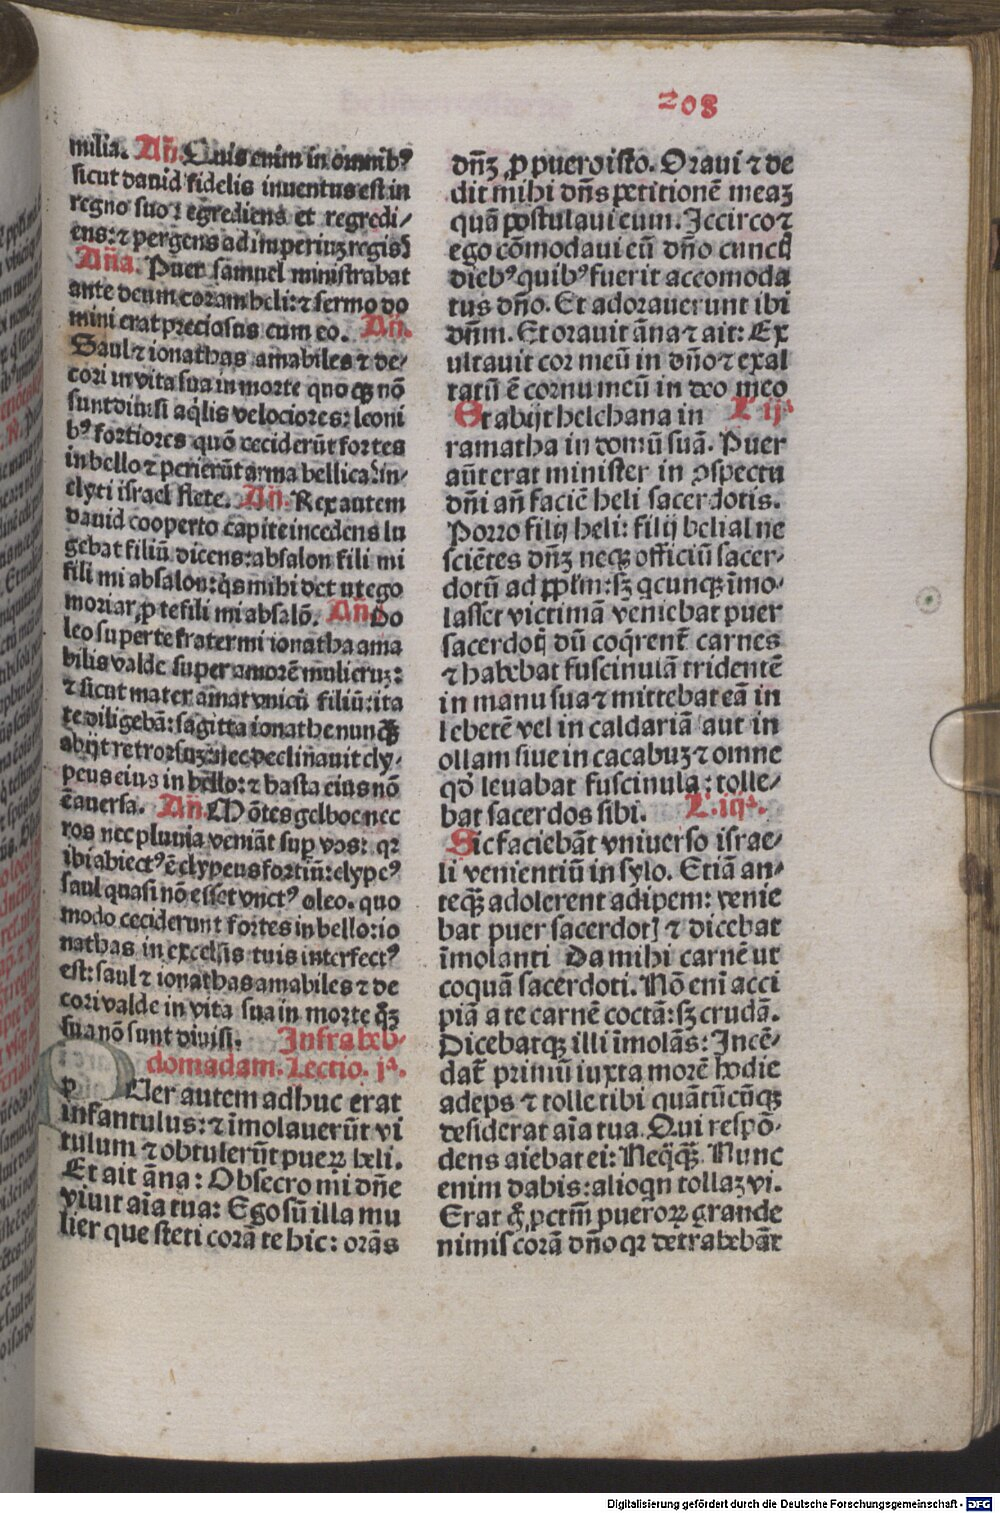 208
milia. Añ. Quis enim in omnibꝰ
sicut dauid fidelis inuentus est in
regno suo: egrediens et regredi/
ens: ⁊ pergens ad imperiuꝫ regis?
Aña. Puer samuel ministrabat
ante deum coram heli: ⁊ sermo do
mini erat preciosus cum eo. Añ.
Saul ⁊ ionathas amabiles ⁊ de/
cori in vita sua in morte quoqꝫ nō
sunt diuisi aq̇lis velociores: leoni
bꝰ fortiores quō ceciderūt fortes
in bello ⁊ perierūt arma bellica: in/
clyti israel flete. Añ. Rex autem
dauid cooperto capite incedens lu
gebat filiū dicens: absalon fili mi
fili mi absalon: q̇s mihi det ut ego
moriar ꝓ te fili mi absalō. Añ. Do
leo super te frater mi ionatha ama
bilis valde super amorē mulieruꝫ:
⁊ sicut mater amat vnicū filiū: ita
te diligebā: sagitta ionathe nunqꝫ
abijt retrorsuꝫ: nec declinauit cly/
peus eius in bello: ⁊ hasta eius nō
ē auersa. Añ. Mōtes gelboe nec
ros nec pluuia veniāt sup vos: qꝛ
ibi abiectꝰ ē clypeus fortiū: clypeꝰ
saul quasi nō esset vnctꝰ oleo. quo
modo ceciderunt fortes in bello: io
nathas in excelsis tuis interfectꝰ
est: saul ⁊ ionathas amabiles ⁊ de
cori valde in vita sua in morte q̄ꝫ
sua nō sunt diuisi. Infra heb-
domadam. Lectio. jᵃ.
PUer autem adhuc erat
infantulus: ⁊ īmolauerūt vi
tulum ⁊ obtulerūt pueꝝ heli.
Et ait āna: Obsecro mi dn̄e
viuit aīa tua: Ego sū illa mu
lier que steti corā te hic: orās
dn̄ꝫ ꝓ puero isto. Oraui ⁊ de
dit mihi dn̄s petitionē meaꝫ
quā postulaui eum. Iccirco ⁊
ego cōmodaui eū dn̄o cunctꝭ
diebꝰ quibꝰ fuerit accomoda
tus dn̄o. Et adorauerunt ibi
dn̄m. Et orauit āna ⁊ ait: Ex
ultauit cor meū in dn̄o ⁊ exal
tatū ē cornu meū in deo meo
Et abijt helchana in L ijᵃ
ramatha in domū suā. Puer
aūt erat minister in ꝯspectu
dn̄i an̄ faciē heli sacerdotis.
Porro filij heli: filij belial ne
sciētes dn̄ꝫ neqꝫ officiū sacer/
dotū ad ppl̄m: sꝫ qcunqꝫ īmo/
lasset victimā veniebat puer
sacerdotꝭ dū coq̇rent᷑ carnes
⁊ habebat fuscinulā tridentē
in manu sua ⁊ mittebat eā in
lebetē vel in caldariā aut in
ollam siue in cacabuꝫ ⁊ omne
qd̓ leuabat fuscinula: tolle/
bat sacerdos sibi. L. iijᵃ.
Sic faciebāt vniuerso israe/
li venientiū in sylo. Etiā an/
teqꝫ adolerent adipem: venie
bat puer sacerdotꝭ ⁊ dicebat
īmolanti Da mihi carnē ut
coquā sacerdoti. Nō eni acci
piā a te carnē coctā: sꝫ crudā.
Dicebatqꝫ illi īmolās: Incē/
dat᷑ primū iuxta morē hodie
adeps ⁊ tolle tibi quātūcūqꝫ
desiderat aīa tua. Qui respō-
dens aiebat ei: Neq̄qꝫ. Nunc
enim dabis: alioqn tollaꝫ vi.
Erat g̊ pctm̄ pueroꝝ grande
nimis corā dn̄o qꝛ detrahebāt
Digitalisierung gefördert durch die Deutsche Forschungsgemeinschaft - DFG